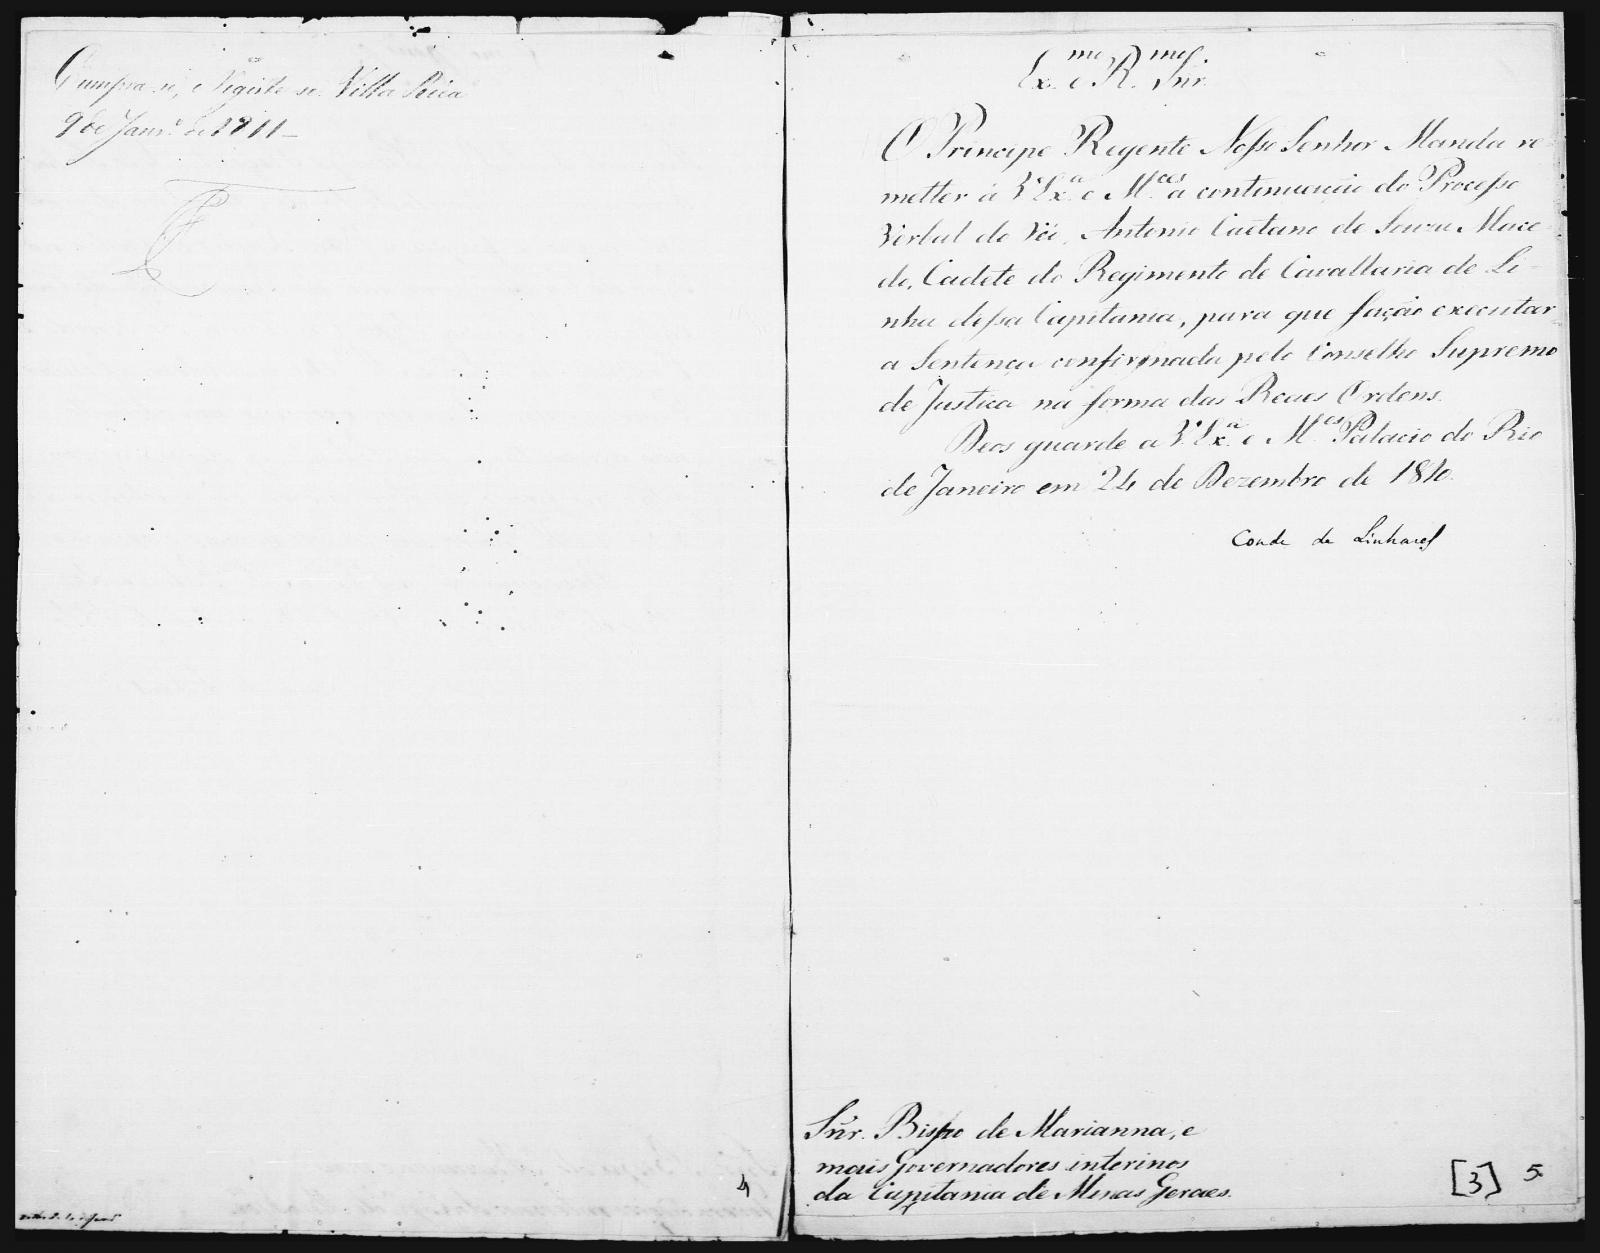 Cumpra se, e Registe se Villa Rica
9 de Janr.º de 1811
4
Ex.mo e R.mo Snr.
O Principe Regente Nosso Senhor Manda re-
metter á V. Ex.a e M.ces a continuação do Processo
Verbal do Réo, Antonio Caetano de Souza Mace-
do, Cadete do Regimento de Cavallaria de Li-
nha dessa Capitania, para que fação executar
a Sentença confirmada pelo Conselho Supremo
de Justica na forma das Reaes Ordens.
Deos guarde a V. Ex.a e M.ces Palacio do Rio
de Janeiro em 24 de Dezembro de 1810.
Conde de Linhares
Snr. Bispo de Marianna, e
mais Governadores interinos
da Capitania de Minas Geraes.
[3] 5